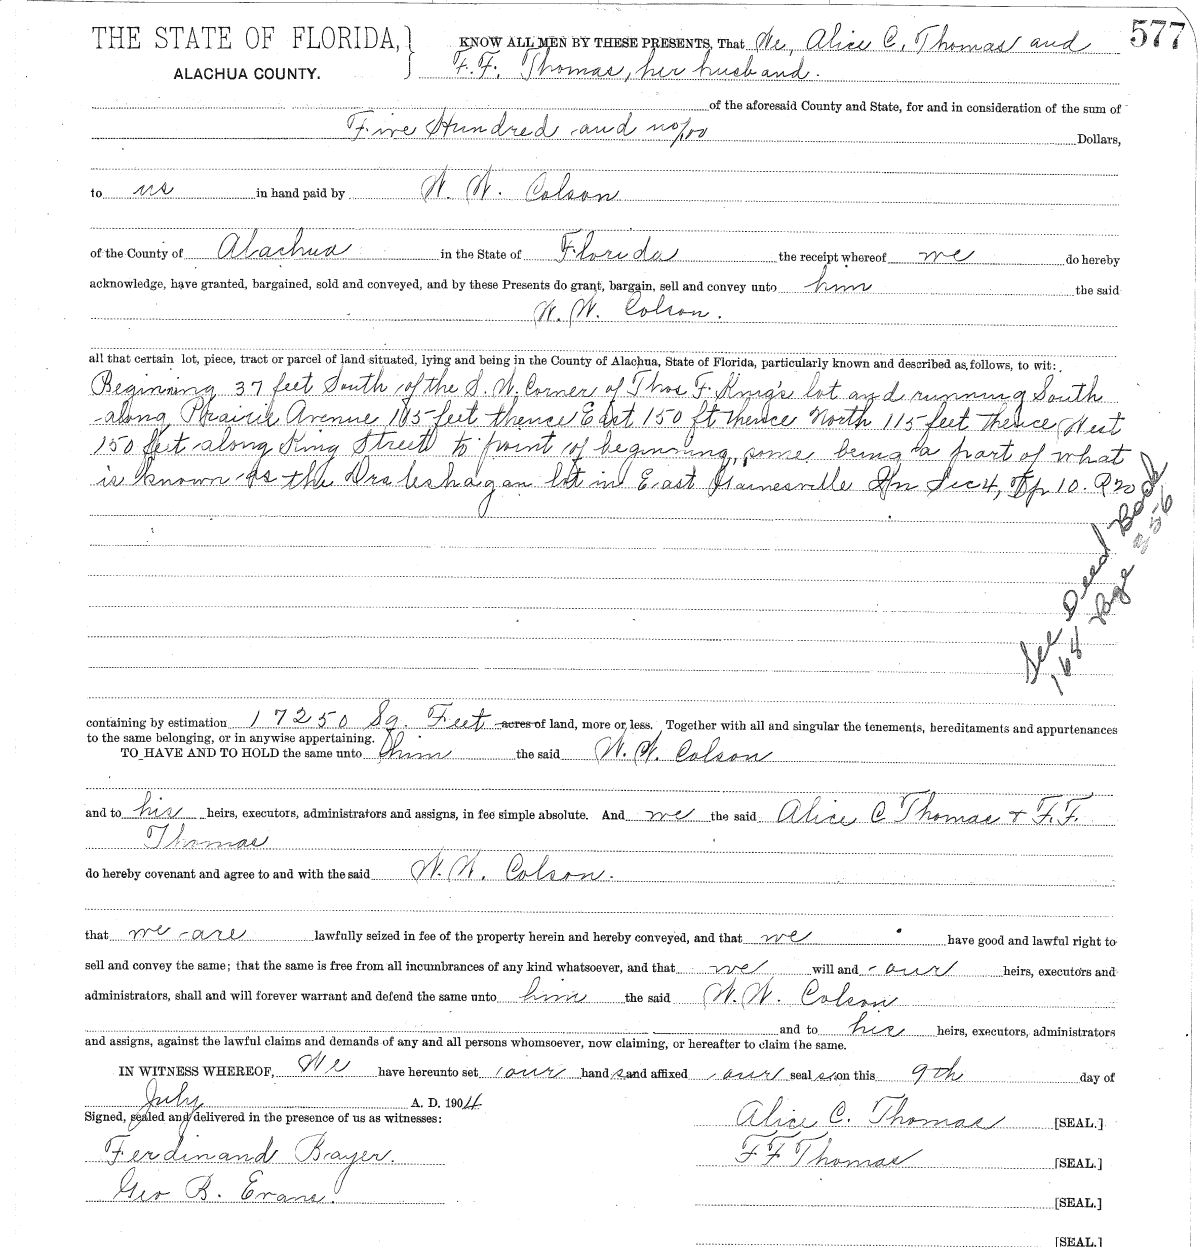 577
THE STATE OF FLORIDA,
ALACHUA COUNTY.
KNOW ALL MEN BY THESE PRESENTS, That We, Alice C. Thomas and
F. F. Thomas, her husband.
of the aforesaid County and State, for and in consideration of the sum of
Five Hundred and no/00 Dollars,
to us in hand paid by W. W. Colson
of the County of Alachua in the State of Florida the receipt whereof we do hereby
acknowledge, have granted, bargained, sold and conveyed, and by these Presents do grant, bargain, sell and convey unto him the said
W. W. Colson.
all that certain lot, piece, tract or parcel of land situated, lying and being in the County of Alachua, State of Florida, particularly known and described as follows, to wit:
Beginning 37 feet South of the S. W. Corner of Thos F. King's lot and running South
along Prairie Avenue 115 feet thence East 150 ft thence North 115 feet thence West
150 feet along King Street to point of beginning, same being a part of what
is known as the lot in East Gainesville In Sec 4, Tp 10. R 20
See Deed Book
168 Page 256
containing by estimation 17250 Sq. Feet acres of land, more or less. Together with all and singular the tenements, hereditaments and appurtenances
to the same belonging, or in anywise appertaining.
TO HAVE AND TO HOLD the same unto him the said W. W. Colson
and to his heirs, executors, administrators and assigns, in fee simple absolute. And we the said Alice C Thomas + F. F.
Thomas
do hereby covenant and agree to and with the said W. W. Colson.
that we are lawfully seized in fee of the property herein and hereby conveyed, and that we have good and lawful right to
sell and convey the same; that the same is free from all incumbrances of any kind whatsoever, and that we will and our heirs, executors and
administrators, shall and will forever warrant and defend the same unto him the said W. W. Colson
and to his heirs, executors, administrators
and assigns, against the lawful claims and demands of any and all persons whomsoever, now claiming, or hereafter to claim the same.
IN WITNESS WHEREOF, We have hereunto set our hands and affixed our seals on this 9th day of
July A. D. 1904
Signed, sealed and delivered in the presence of us as witnesses:
Alice C. Thomas [SEAL.]
Ferdinand Bayer.
F F Thomas [SEAL.]
Geo B. Evans.
[SEAL.]
[SEAL.]